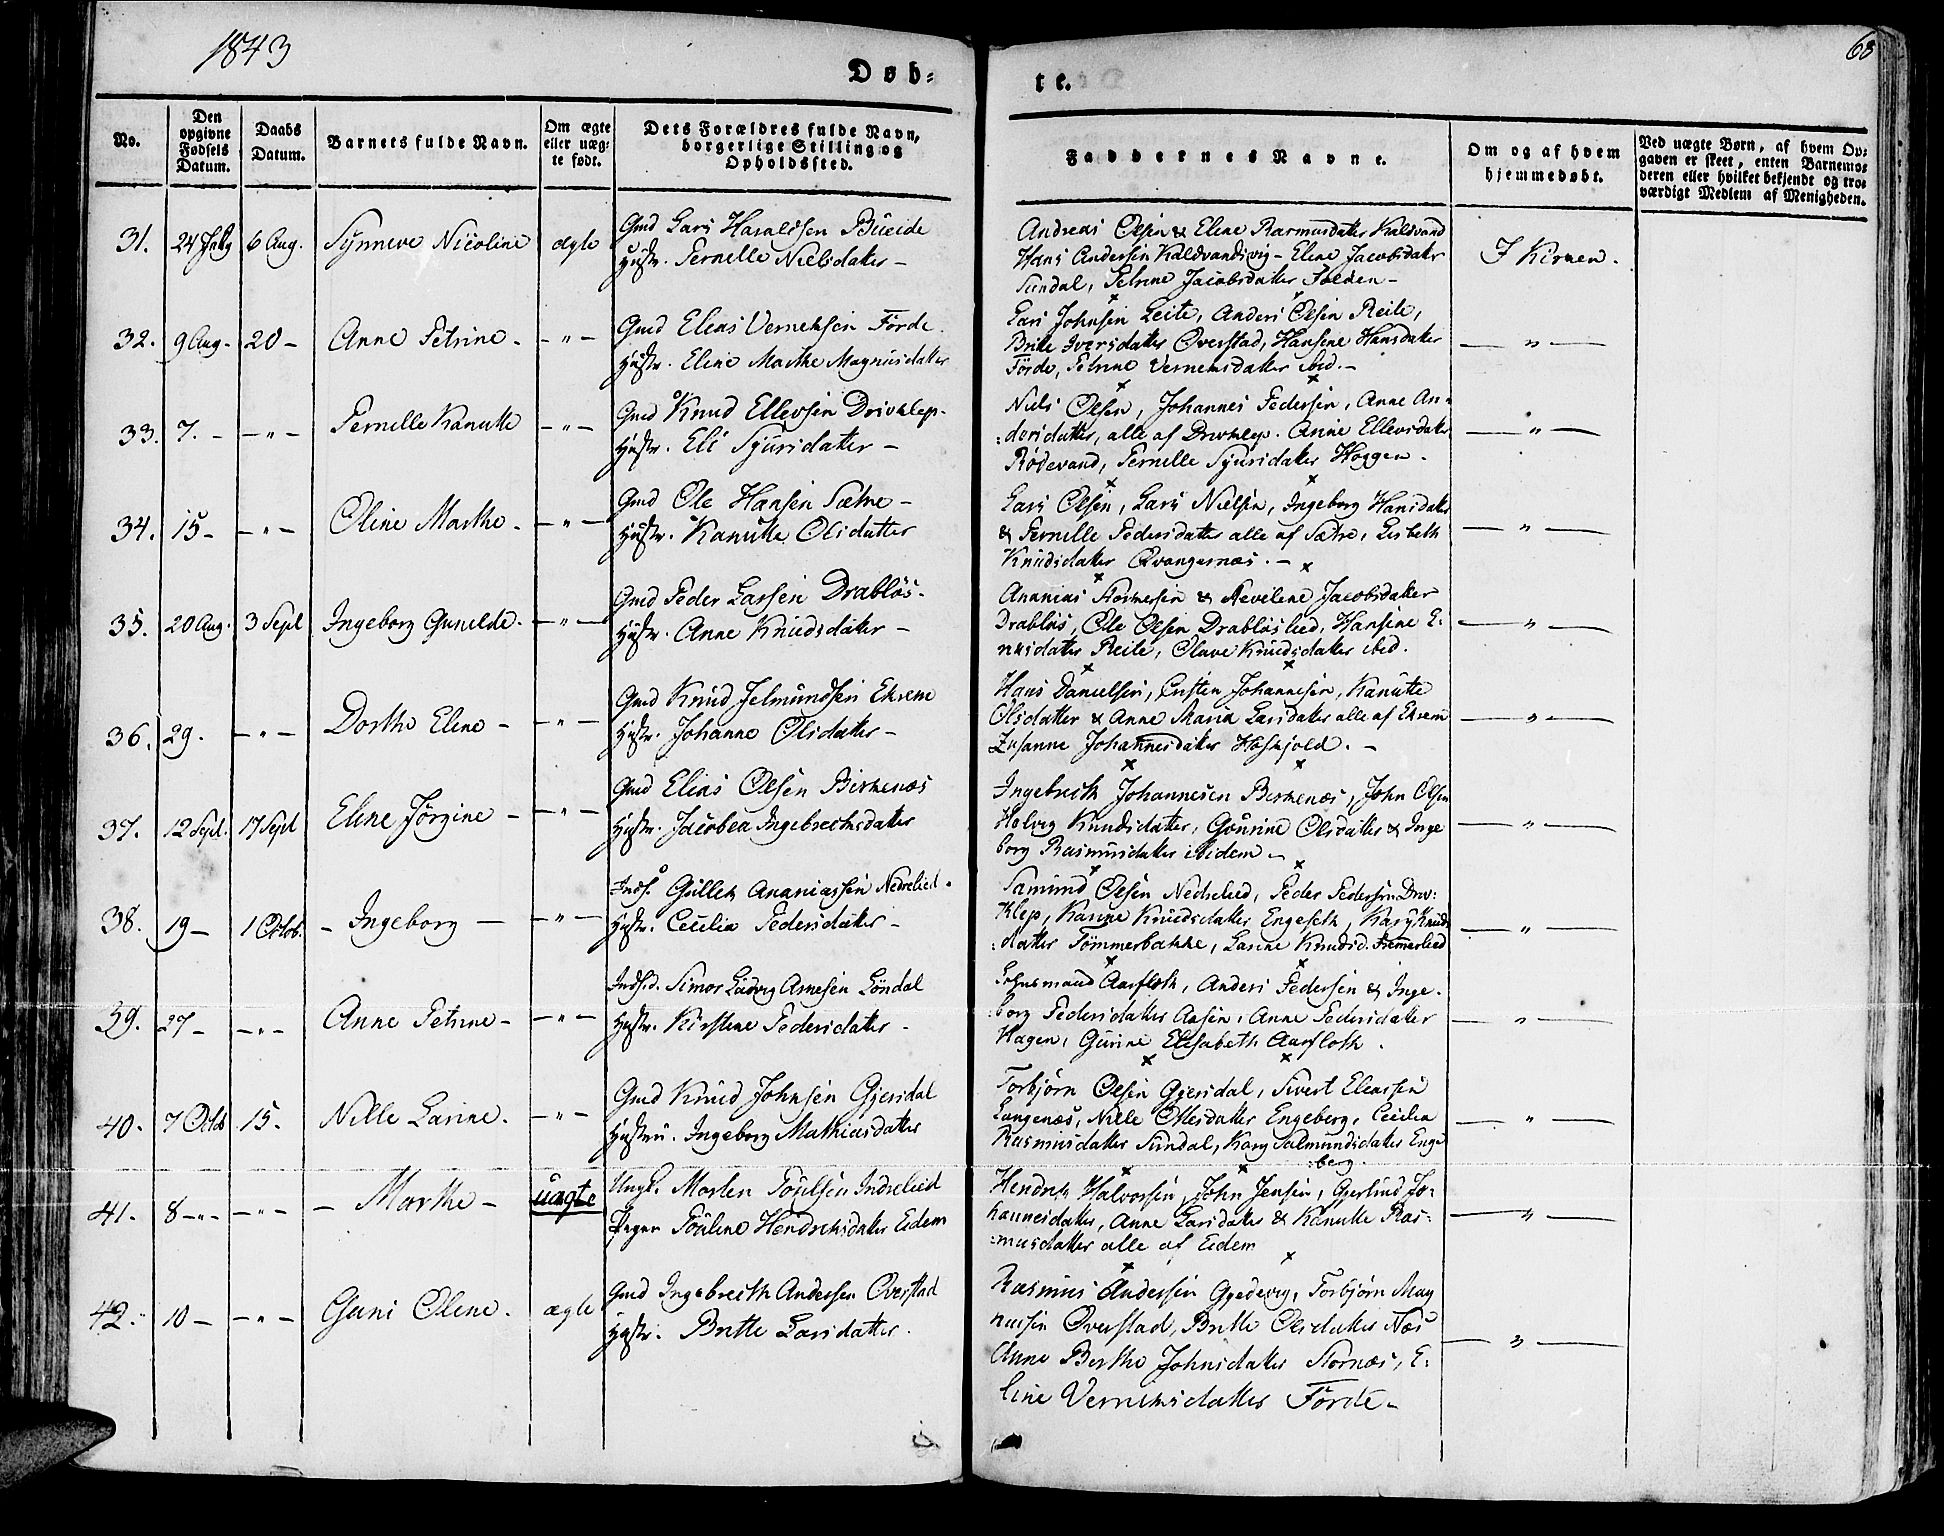 1843
Døb-
te.
68
No.
Den opgivne Fødsels Datum.
Daabs Datum.
Barnets fulde Navn.
Om ægte eller uæg- te født.
Dets Forældres fulde Navn, borgerlige Stilling og Opholdssted.
Faddernes Navne.
Om og af hvem hjemmedøbt.
Ved uægte Børn, af hvem Op- gaven er skeet, enten Barnemo- deren eller hvilket bekjendt og tro- værdigt Medlem af Menigheden.
31. 24 July 6 Aug. Synneve Nicoline ægte Gmd Lars Haraldsen Bueide
Hustr. Pernelle Nielsdatter -
Andreas Olsen & Eline Rasmusdatter Kaldvand
Hans Andersen Kaldvandsvig - Eline Jacobsdatter
Sundal, Petrine Jacobsdatter Folden -
I Kirken.
32. 9 Aug. 20 - Anne Petrine - - " - Gmd Elias Verneksen Förde.
Hustr. Eline Marthe Magnusdatter
Lars Johnsen Leite, Anders Olsen Reite,
Brite Iversdatter Overstad, Hansine Hansdatter
Förde, Petrine Verneksdatter ibid. -
- " -
33. 7. - - " - Pernelle Kanutte - " - Gmd Knud Ellevsen Drivklep.
Hustr. Eli Sjursdatter -
Niels Olsen, Johannes Pedersen, Anne An-
:dersdatter, alle af Drivklep. Anne Ellevsdatter
Rödevand, Pernelle Sjursdatter Haggen.
- " -
34. 15 - - " - Oline Marthe - - " - Gmd Ole Hansen Sætre -
Hustr. Kanutte Olsdatter
Lars Olsen, Lars Nielsen, Ingeborg Hansdatter
& Pernelle Pedersdatter alle af Sætre, Lisbeth
Knudsdatter Qvangernæs. -
- " -
35. 20 Aug. 3 Sept Ingeborg Gunelde. - " - Gmd Peder Larsen Drabløs.
Hustr. Anne Knudsdatter -
Ananias & Jacobsdatter
Drabløs, Ole Olsen Drabløslied, Hansine E-
nusdatter Reite, Olave Knudsdatter ibid.
- " -
36. 29. - " - Dorthe Eline - - " - Gmd Knud Jelmundsen Ekrem
Hustr. Johanne Olsdatter -
Hans Danielsen, Johannesen, Kanutte
Olsdatter & Anne Maria Larsdatter alle af Ekrem
Zusanne Johannesdatter Hoskjold. -
- " -
37. 12 Sept. 17 Sept Eline Jörgine - - " - Gmd Elias Olsen Birkenæs
Hustr. Jacobea Ingebrechtsdatter
Ingebreth Johannesen Birkenæs, John Olsen
Holvig Knudsdatter, Gourine Olsdatter & Inge
borg Rasmusdatter ibidem -
- " -
38. 19 - 1 Octob. - Ingeborg - - " - Inds. Gullek Ananiassen Nedrelied.
Hustr. Cecilia Pedersdatter -
Samund Olsen Nedrelied, Peder Pedersen Driv-
klep, Karine Knudsdatter Engeseth, Kary Knuds
:datter Tömmerbakke, Larine Knudsd.
- " -
39. 27 - - " - Anne Petrine - - " - Indsid. Simon Ludvig Arnesen Löndal
Hustr. Kirstine Pedersdatter -
Aarfloth, Anders Pedersen & Inge-
:borg Pedersdatter Aasen, Anne Pedersdatter
Hagen, Gurine Elisabeth Aarfloth.
- " -
40. 7 Octob 15. Nille Larine. - " - Gmd Knud Johnsen Gjersdal
Hustru. Ingeborg Mathiasdatter
Torbjörn Olsen Gjersdal, Sivert Eleassen
Langenæs, Nille Ottesdatter Engeberg, Cecilia
Rasmusdatter Sundal, Kary Salmundsdatter Enge
:berg.
- " -
41. 8 - " - - " - - Marthe - uægte Ungk. Morten Poulsen Indrelied
Pigen Pouline Hendriksdatter Eidem
Hendrik Halvorsen, John Jensen, Gjerlund Jo-
hannesdatter, Anne Larsdatter & Kanutte Ras-
:musdatter alle af Eidem
- " -
42. 10 - - " - Guni Oline. ægte Gmd Ingebreth Andersen Overstad
Hustr. Britte Larsdatter.
Rasmus Andersen Gjedevig, Torbjörn Mag
nusen Overstad, Britte Olsdatter Næs
Anne Berthe Johnsdatter Stornæs, E-
line Verneksdatter Förde -
- " -